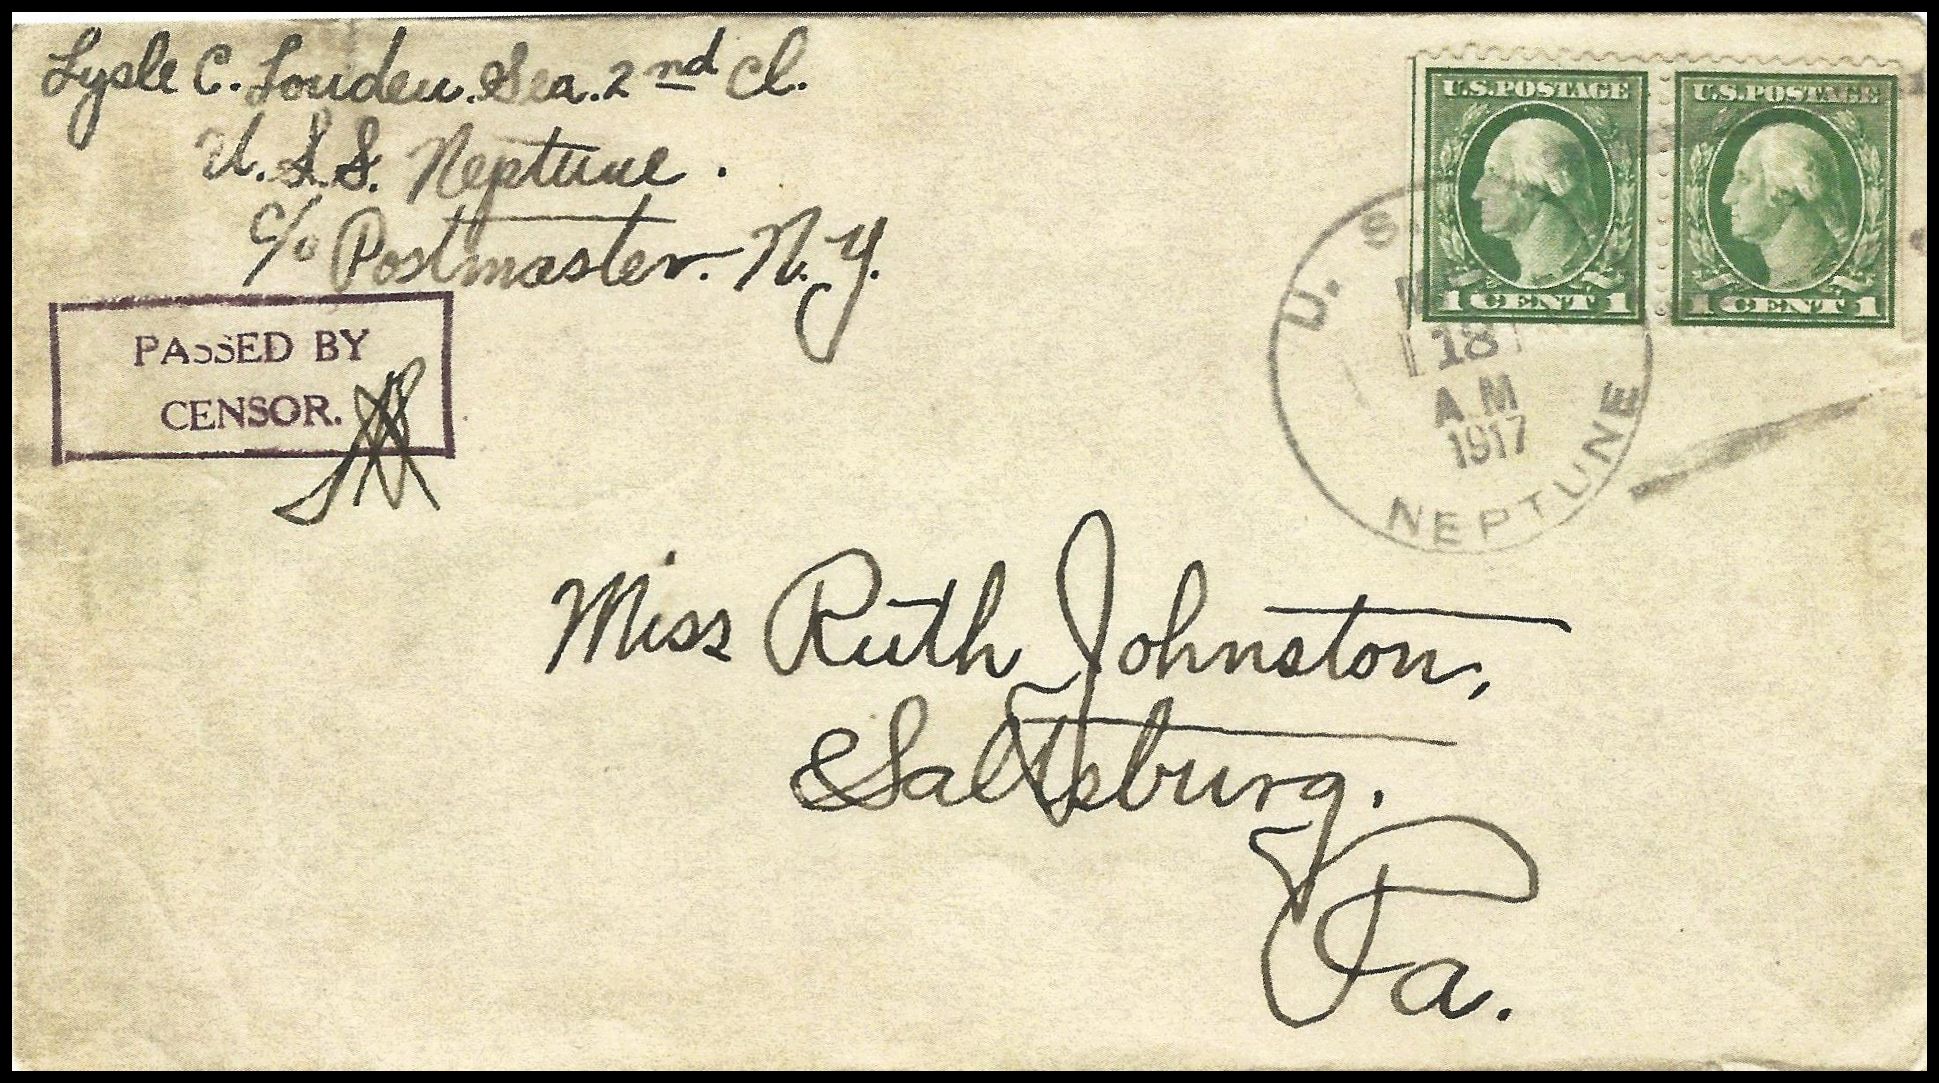 Lysle C. Louden. Sea. 2nd Cl.
U.S.S. Neptune.
c/o Postmaster. N.Y.
PASSED BY
CENSOR.
U.S.POSTAGE
1 CENT 1
U.S.POSTAGE
1 CENT 1
U. S.
18
A M
1917
NEPTUNE
Miss Ruth Johnston,
Saltsburg,
Pa.